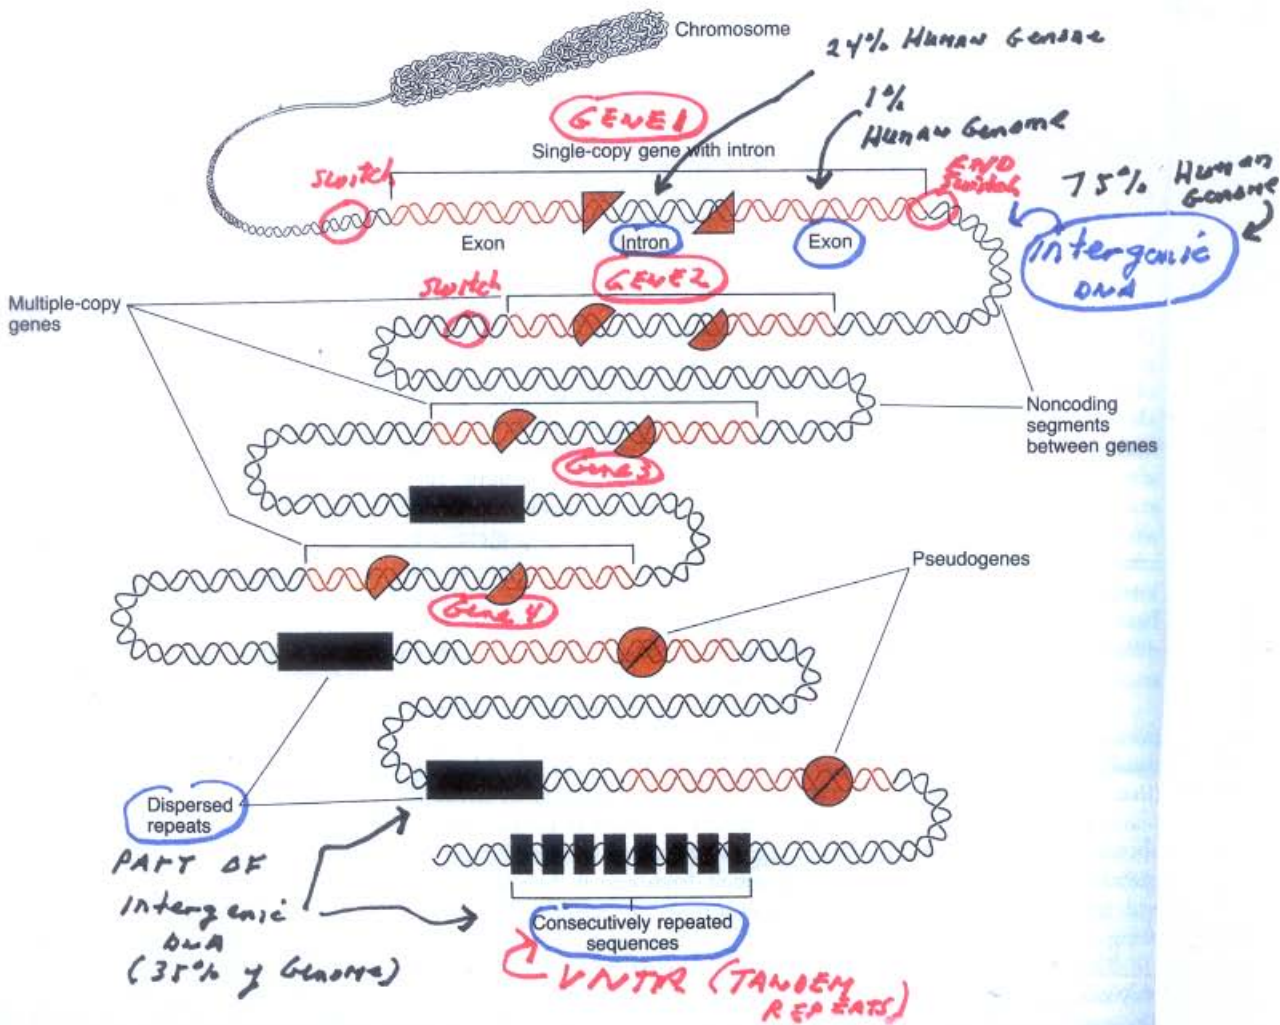 Chromosome
24% Human Genome
1%
Human Genome
GENE 1
Single-copy gene with intron
switch
END
Switch
75% Human
Genome
Exon
Intron
Exon
Intergenic
DNA
GENE 2
switch
Multiple-copy
genes
Noncoding
segments
between genes
Gene 3
Gene 4
Pseudogenes
Dispersed
repeats
PART OF
Intergenic
DNA
(35% of Genome)
Consecutively repeated
sequences
VNTR (TANDEM
REPEATS)